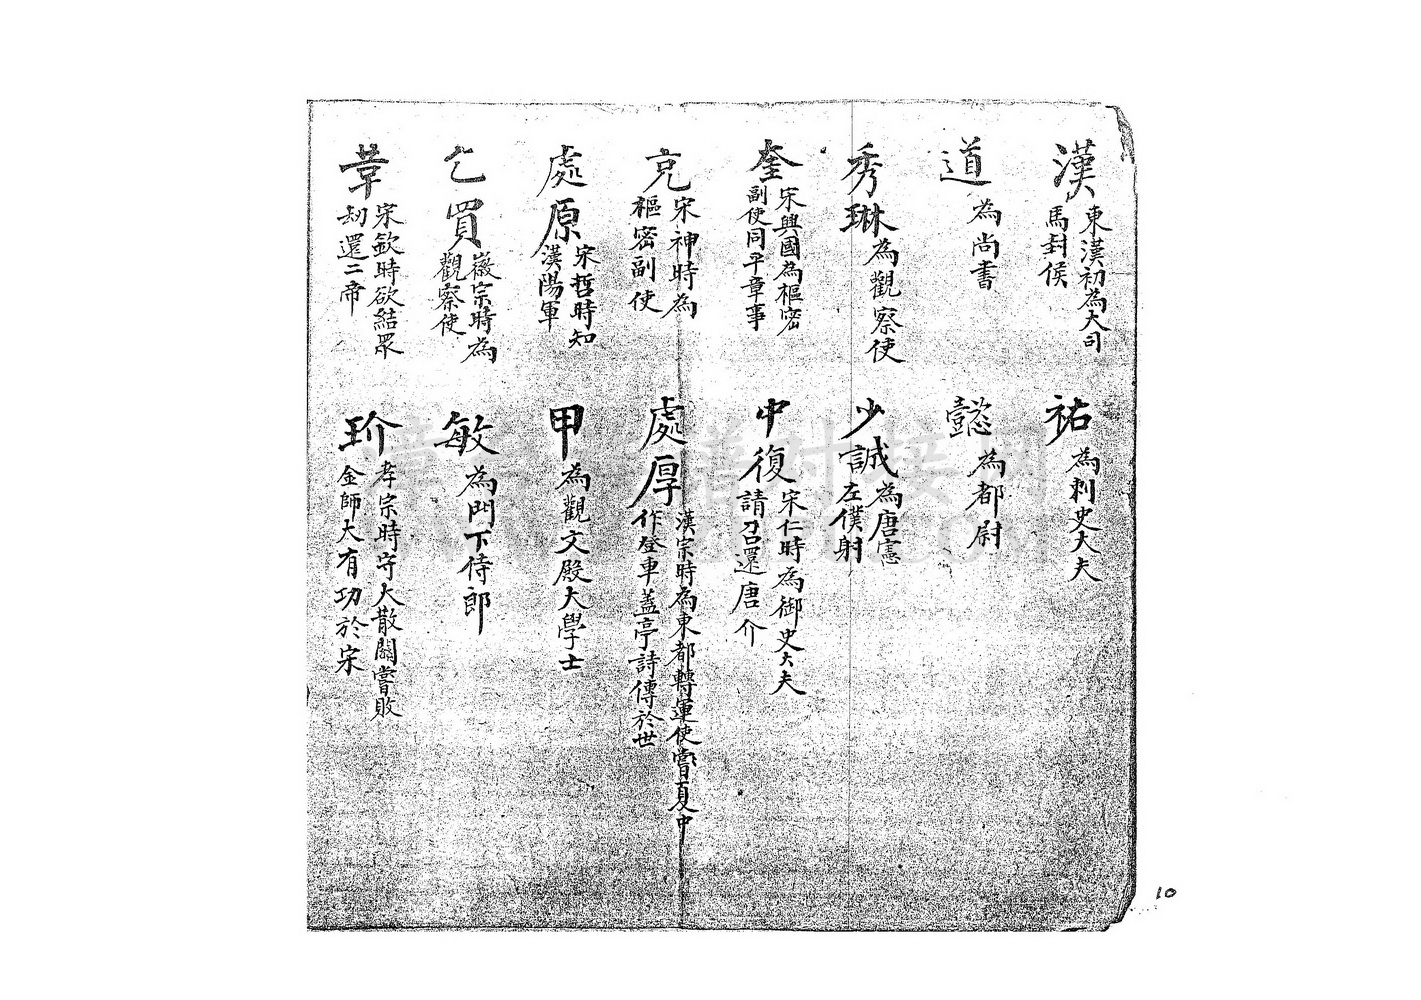 漢 東漢初為大司馬封侯
祐 為刺史大夫
道 為尚書
懿 為都尉
秀琳 為觀察使
少誠 為唐憲左僕射
奎 宋興國為樞密副使同平章事
中復 宋仁時為御史大夫請召還唐介
充 宋神時為樞密副使
處厚 漢宗時為東都轉運使嘗夏中作登車蓋亭詩傳於世
處原 宋哲時知漢陽軍
甲 為觀文殿大學士
乞買 徽宗時為觀察使
敏 為門下侍郎
革 宋欽時欲結眾刼還二帝
玠 孝宗時守大散關嘗敗金師大有功於宋
10